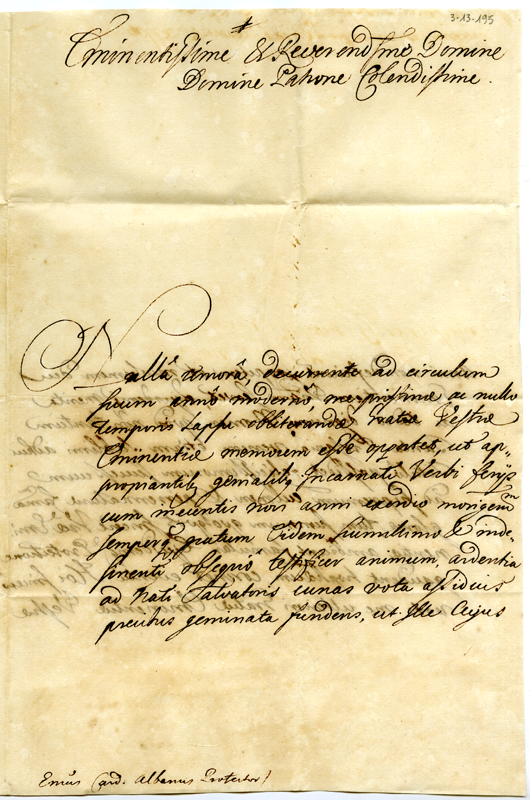 3-13-195
Eminentissime & Reverendssme Domine
Domine Patrone Colendissime.
Nullâ remorâ, decurrente ad circulum
suum annô modernô me pristinæ ac nullo
temporis lapsu obliterandæ Gratiæ Vestræ
Eminentiæ memorem esse oportet, ut ap„
propiantibq genialibq Incarnati Verbi ferijs
cum ineuntis novi anni exordio morigerum
semperq gratum Eidem humillimo & inde„
sinenti obsequiô testificer animum, ardentia
ad Nati Salvatoris cunas vota assiduis
precibus geminata fundens, ut Ille Cujus
Emus Card. Albanus Protector